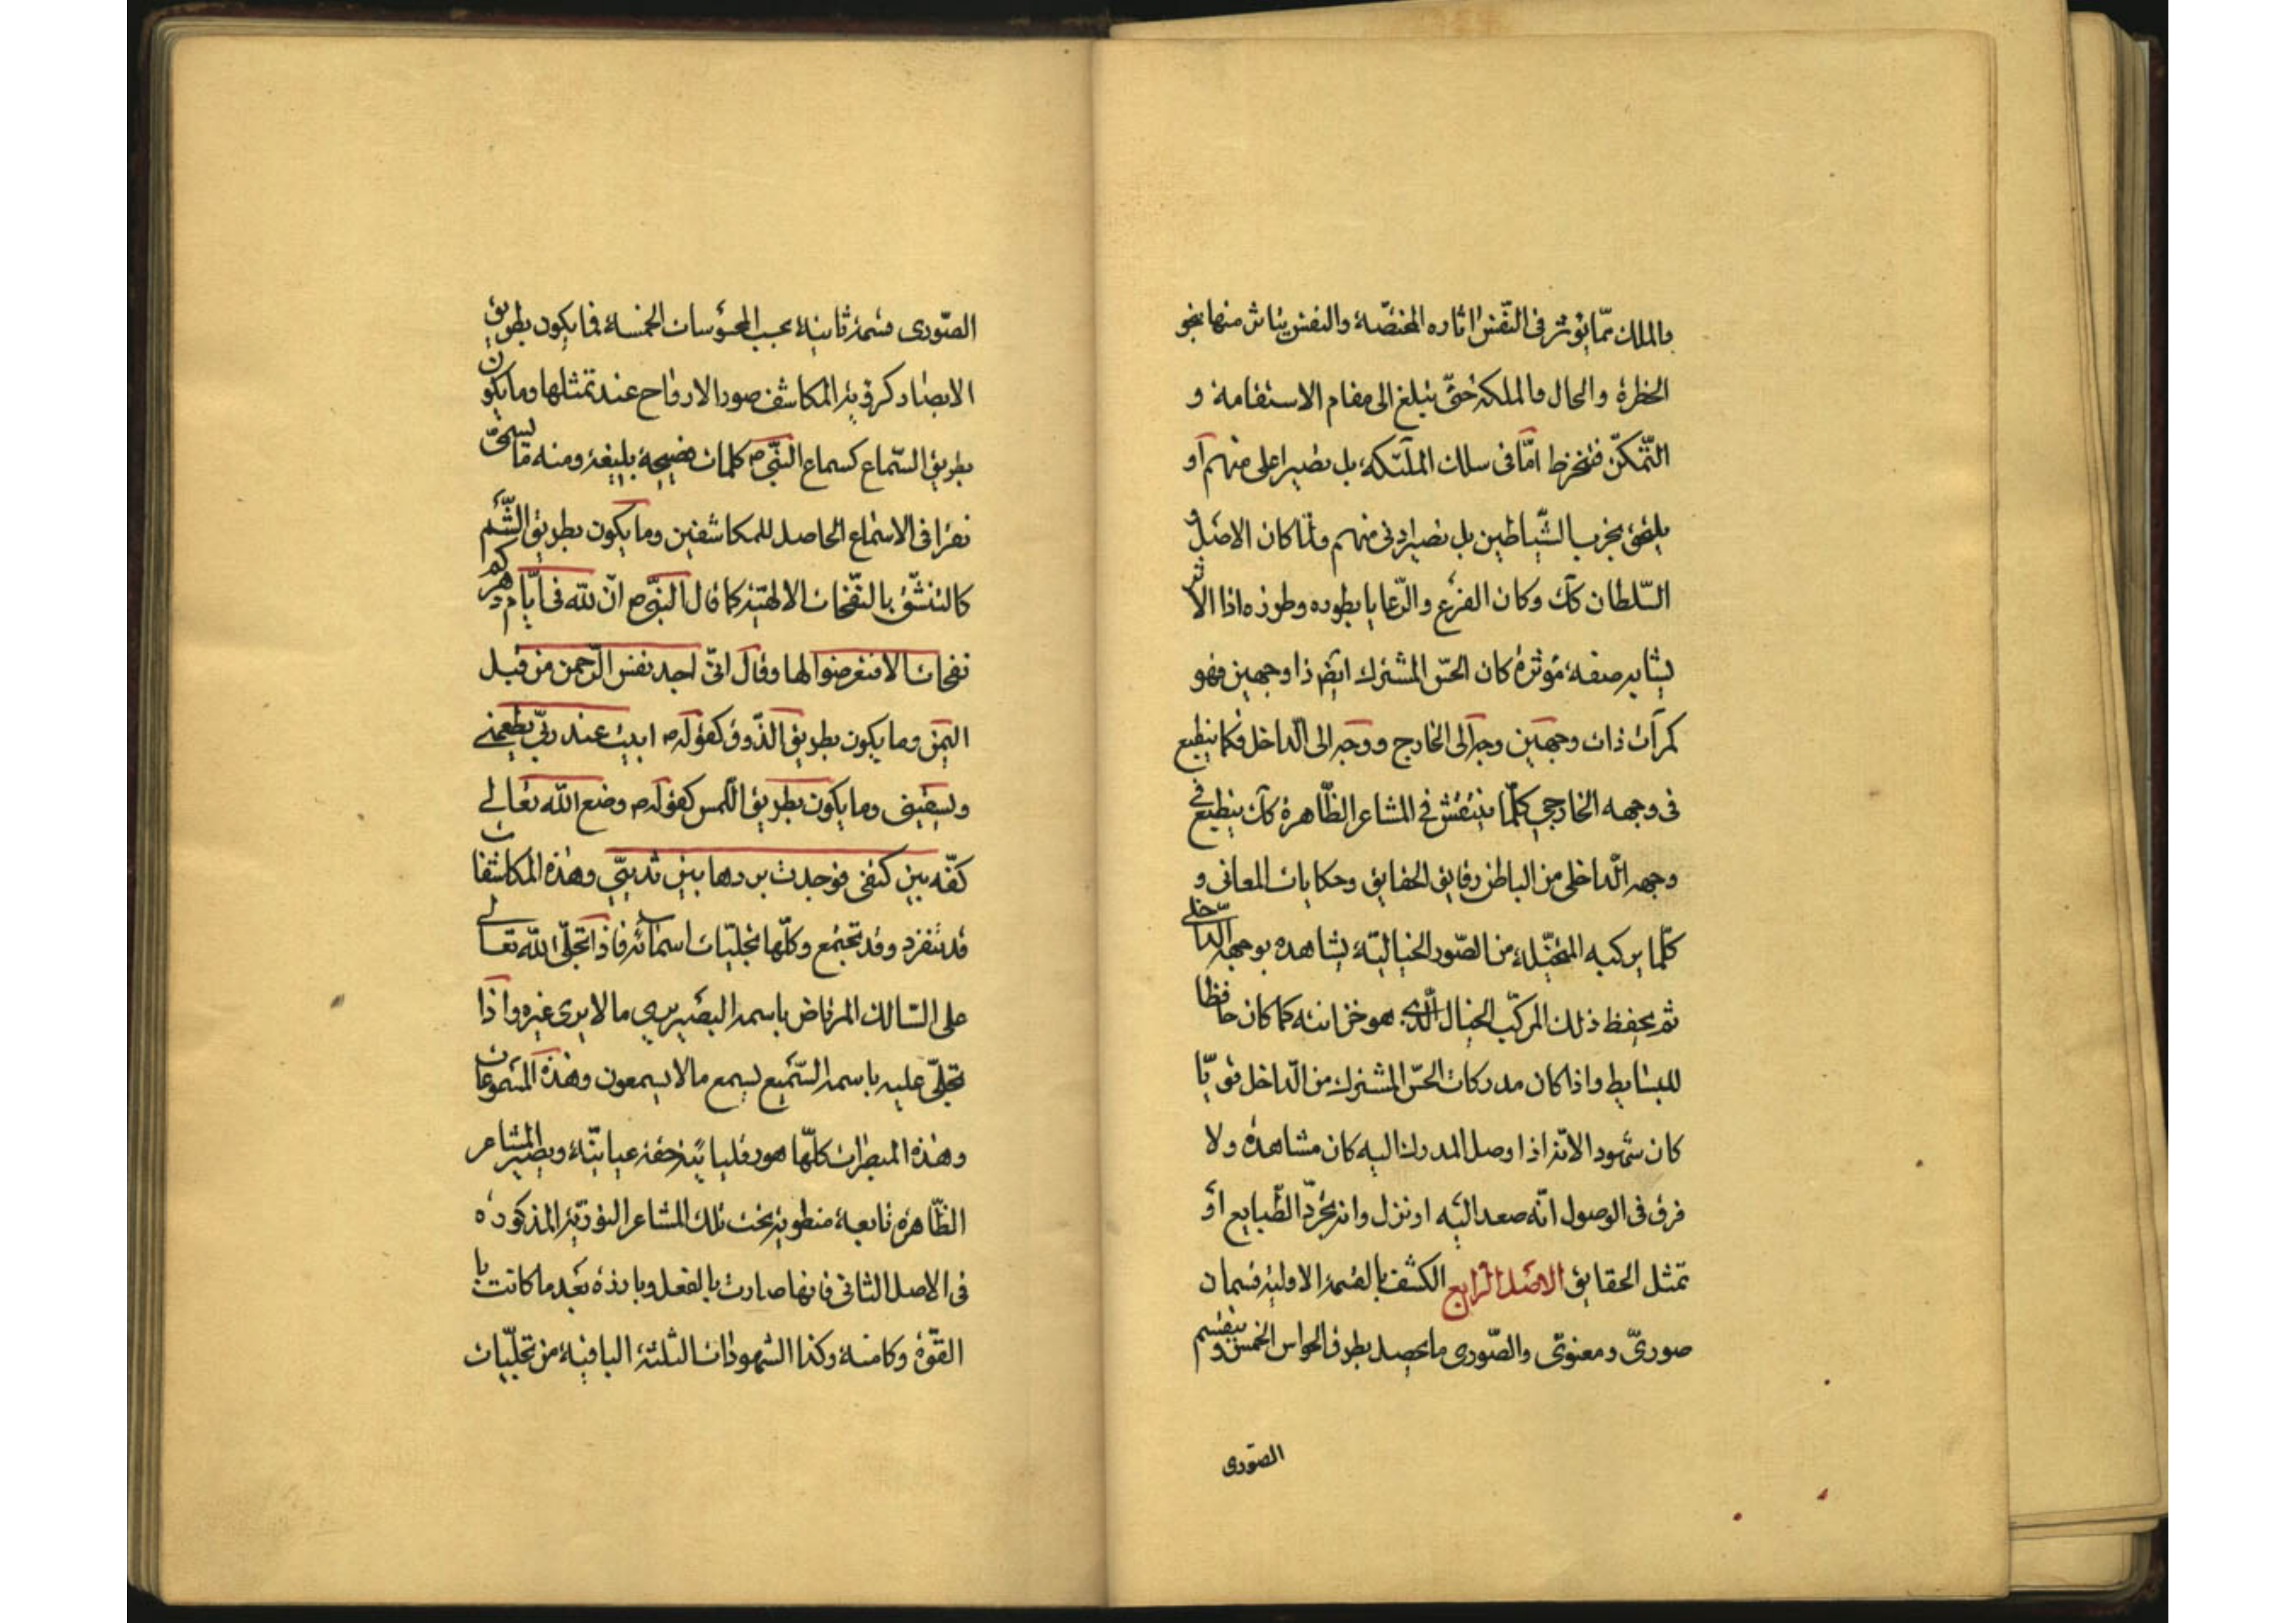 والملك ممّا يؤثر فى النّفس اثاره المختصّة والنفس يتاثر منها بنحو
الخطرة والحال والملكة حتّى يبلغ الى مقام الاستقامة و
التّمكّن فينخرط امّا فى سلك الملئكة بل يصير اعلى منهم او
يلحق بحزب الشّياطين بل يصير ادنى منهم ولمّا كان الاصل و
السّلطان كك وكان الفرع والرّعايا بطوره وطرزه اذا الاثر
يشابه صفة مؤثره كان الحسّ المشترك ايضا ذا وجهين فهو
كمرآت ذات وجهين وجه الى الخارج ووجه الى الدّاخل فكما ينطبع
فى وجهه الخارجي كلّما ينتقش فى المشاعر الظّاهرة كك ينطبع فى
وجهه الدّاخلى من الباطن رقايق الحقايق وحكايات المعانى و
كلّما يركبه المتخيّلة من الصّور الخياليّة يشاهده بوجهه الدّاخلى
ثم يحفظ ذلك المركّب الخيال الّذى هو خزانته كما كان حافظا
للبسايط واذا كان مدركات الحسّ المشترك من الدّاخل قويّا
كان شهودا لانّه اذا وصل المدرك اليه كان مشاهدة ولا
فرق فى الوصول انّه صعد اليه او نزل وانه تجرّد الطّبايع او
تمثل الحقايق الاصل الرّابع الكشف بالقسمة الاولية قسمان
صورىّ ومعنوىّ والصّورى ما يحصل بطرق الحواس الخمس وينقسم
الصّورى
الصّورى قسمة ثانية بحسب المحسوسات الخمسة فما يكون بطريق
الابصار كرؤية المكاشف صور الارواح عند تمثلها وما يكون
بطريق السّماع كسماع النّبىّ ص كلمات فصيحة بليغة ومنه ما يسمّى
نقرا فى الاسماع الحاصل للمكاشفين وما يكون بطريق الشّم
كالتنشّق بالنّفخات الالهيّة كما قال النبىّ ص انّ للّه فى ايّام دهركم
نفحات الا فتعرضوا لها وقال انّى اجد نفس الرّحمن من قبل
اليمن وما يكون بطريق الذّوق كقوله ص ابيت عند ربّى يطعمنى
ويسقينى وما يكون بطريق اللّمس كقوله ص وضع اللّه تعالى
كفّه بين كتفى فوجدت بردها بين ثدييّ وهذه المكاشفات
قد تنفرد وقد تجتمع وكلّها تجليّات اسمآئه فاذا تجلّى اللّه تعالى
على السّالك المرتاض باسمه البصير يرى ما لا يرى غيره واذا
تجلّى عليه باسمه السّميع يسمع ما لا يسمعون وهذه المسموعات
وهذه المبصرات كلّها عيانيّة ويصير المشاعر
الظّاهرة تابعة منطوية تحت تلك المشاعر النوريّة المذكورة
فى الاصل الثانى فانها صارت بالفعل وبارزة بعد ما كانت با
القوّة وكامنة وكذا الشهودات الثلثة الباقية من تجلّيات